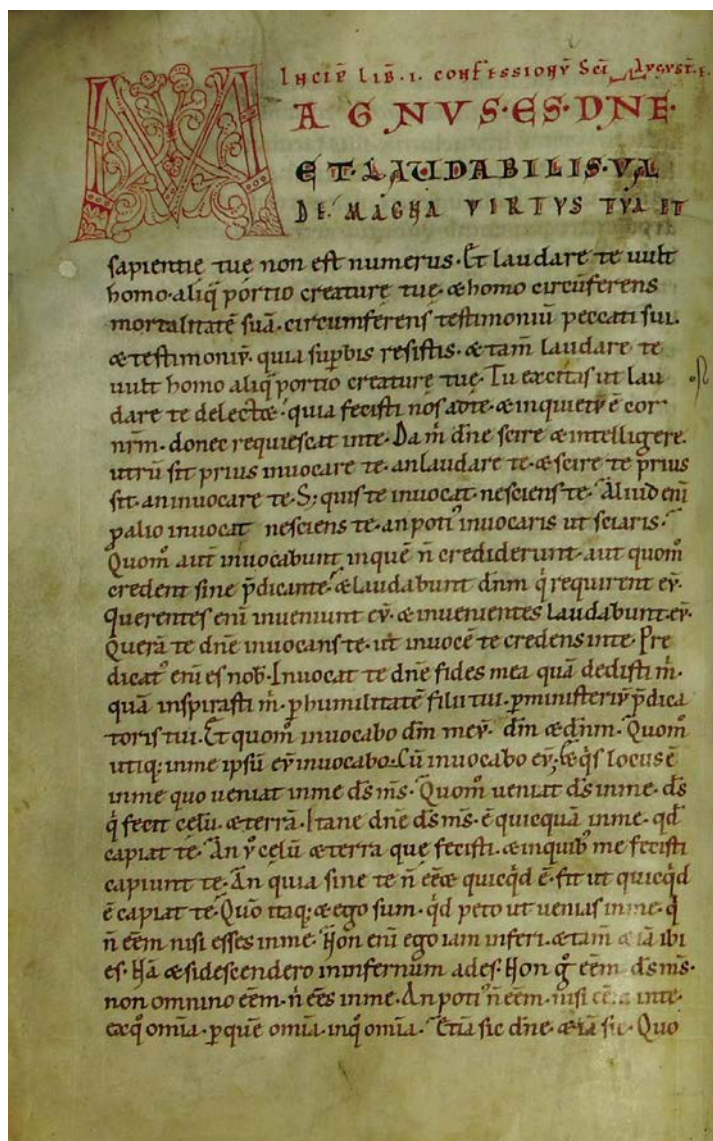 INCIP̄ LIB̄·I· CONFESSIONV̄ SC̄I AVGVST̄I·
MAGNVS·ES·DN̄E·
ET·LAUDABILIS·VAL
DE·MAGNA VIRTVS TVA ET
sapientie tue non est numerus·Et laudare te uult
homo·aliq̄ portio creature tue·& homo circūferens
mortalitatē suā·circumferens testimoniū peccati sui·
& testimoniū·quia sup̄bis resistis·& tam̄ laudare te
uult homo aliq̄ portio creature tue·Tu excitas ut lau
dare te delectet·quia fecisti nos ad te·& inquietū ē cor
nr̄m·donec requiescat in te·Da m̄ dn̄e scire & intelligere·
utrū sit prius inuocare te·an laudare te·& scire te prius
sit·an inuocare te·S; quis te inuocat·nesciens te·Aliud eni
p alio inuocat nesciens te·an poti᾽ inuocaris ut sciaris·
Quom̊ aut̄ inuocabunt inquē n̄ crediderunt·aut quom̊
credent sine p̄dicante·& laudabunt dn̄m q̇ requirent eū·
Querentes eni inueniunt eū·& inuenientes laudabunt eū·
Querā te dn̄e inuocans te·ut inuocē te credens in te·Pre
dicat᾽ eni es nob̄·Inuocat te dn̄e fides mea quā dedisti m̄·
quā inspirasti m̄·p humilitatē filii tui·p ministeriū p̄dica
toris tui·Et quom̊ inuocabo dm̄ meū·dm̄ & dn̄m·Quom̊
utiq; in me ipsū eū inuocabo·Cū inuocabo eū; Et q̇s locus ē
in me quo ueniat in me ds̄ ms̄·Quom̊ ueniat ds̄ in me·ds̄
q̇ fecit celū·& terrā·Itane dn̄e ds̄ ms̄·ē quicquā in me·qd̄
capiat te·An ů celū & terra que fecisti·& in quib᾽ me fecisti
capiunt te·An quia sine te n̄ eēt quicq̇d ē·fit ut quicq̇d
ē capiat te·Quō itaq; & ego sum·q̇d peto ut uenias in me·q̇
n̄ eēm nisi esses in me·Non eni ego iam inferi·& tam̄ & iā ibi
es·Nā & si descendero in infernum ades·Non g̊ eēm ds̄ ms̄·
non omnino eēm·n̄ eēs in me·An poti᾽ n̄ eēm·nisi eēm in te·
ex q̊ omīa·p quē omīa·in q̊ omīa·Etiā sic dn̄e·& iā sic·Quo